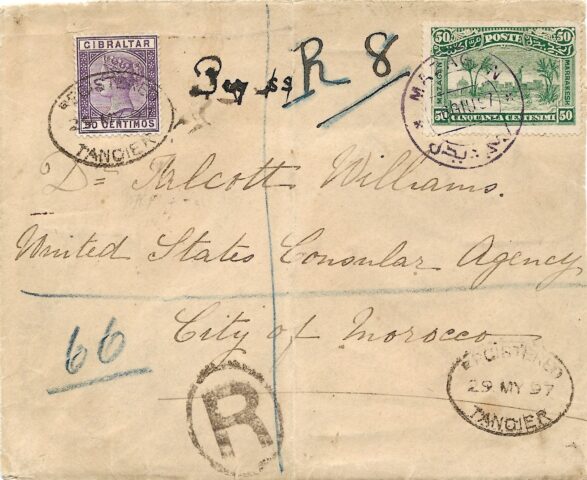 GIBRALTAR
50 CENTIMOS
REGISTERED
TANGIER
R 8
50 POSTE 50
MAZAGAN MARRAKECH
50 CINQUANZA CENTESIMI 50
MAZAGAN
Dr Talcott Williams.
United States Consular Agency
City of Morocco
66
R
REGISTERED
29 MY 97
TANGIER